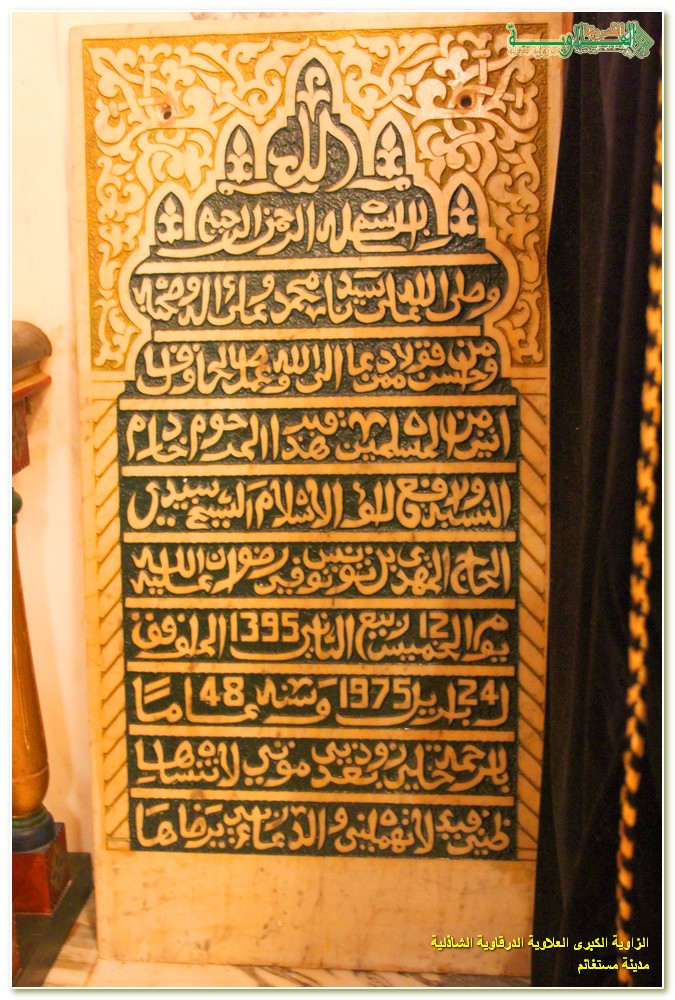 العلاوية
الله
بسم الله الرحمن الرحيم
وصلى الله على سيدنا محمد وعلى آله وصحبه
ومن أحسن قولا ممن دعا إلى الله وعمل صالحا وقال
إنني من المسلمين هذا قبر المرحوم خادم
النسبة ورافع للف الإسلام الشيخ سيدي
الحاج المهدي بن تونس توفي رضوان الله عليه
يوم الخميس 12 ربيع الثاني 1395 الموافق
ل 24 ابريل 1975 وسنه 48 عاما
بالرحمة خليلي زودني بعد موتي لا تنساها
ظني فيك لا تهملني والدعاء يرضاها
الزاوية الكبرى العلاوية الدرقاوية الشاذلية
مدينة مستغانم